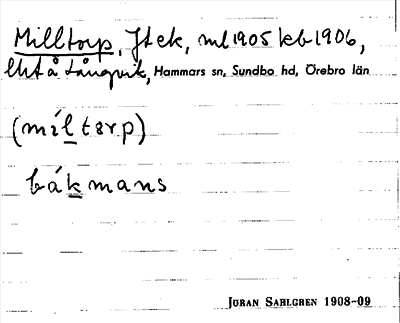 Milltorp, Jtek, ml 1905 kb 1906,
Utå Långvik, Hammars sn, Sundbo hd, Örebro län
(míltorp)
bákmans
JÖRAN SAHLGREN 1908-09